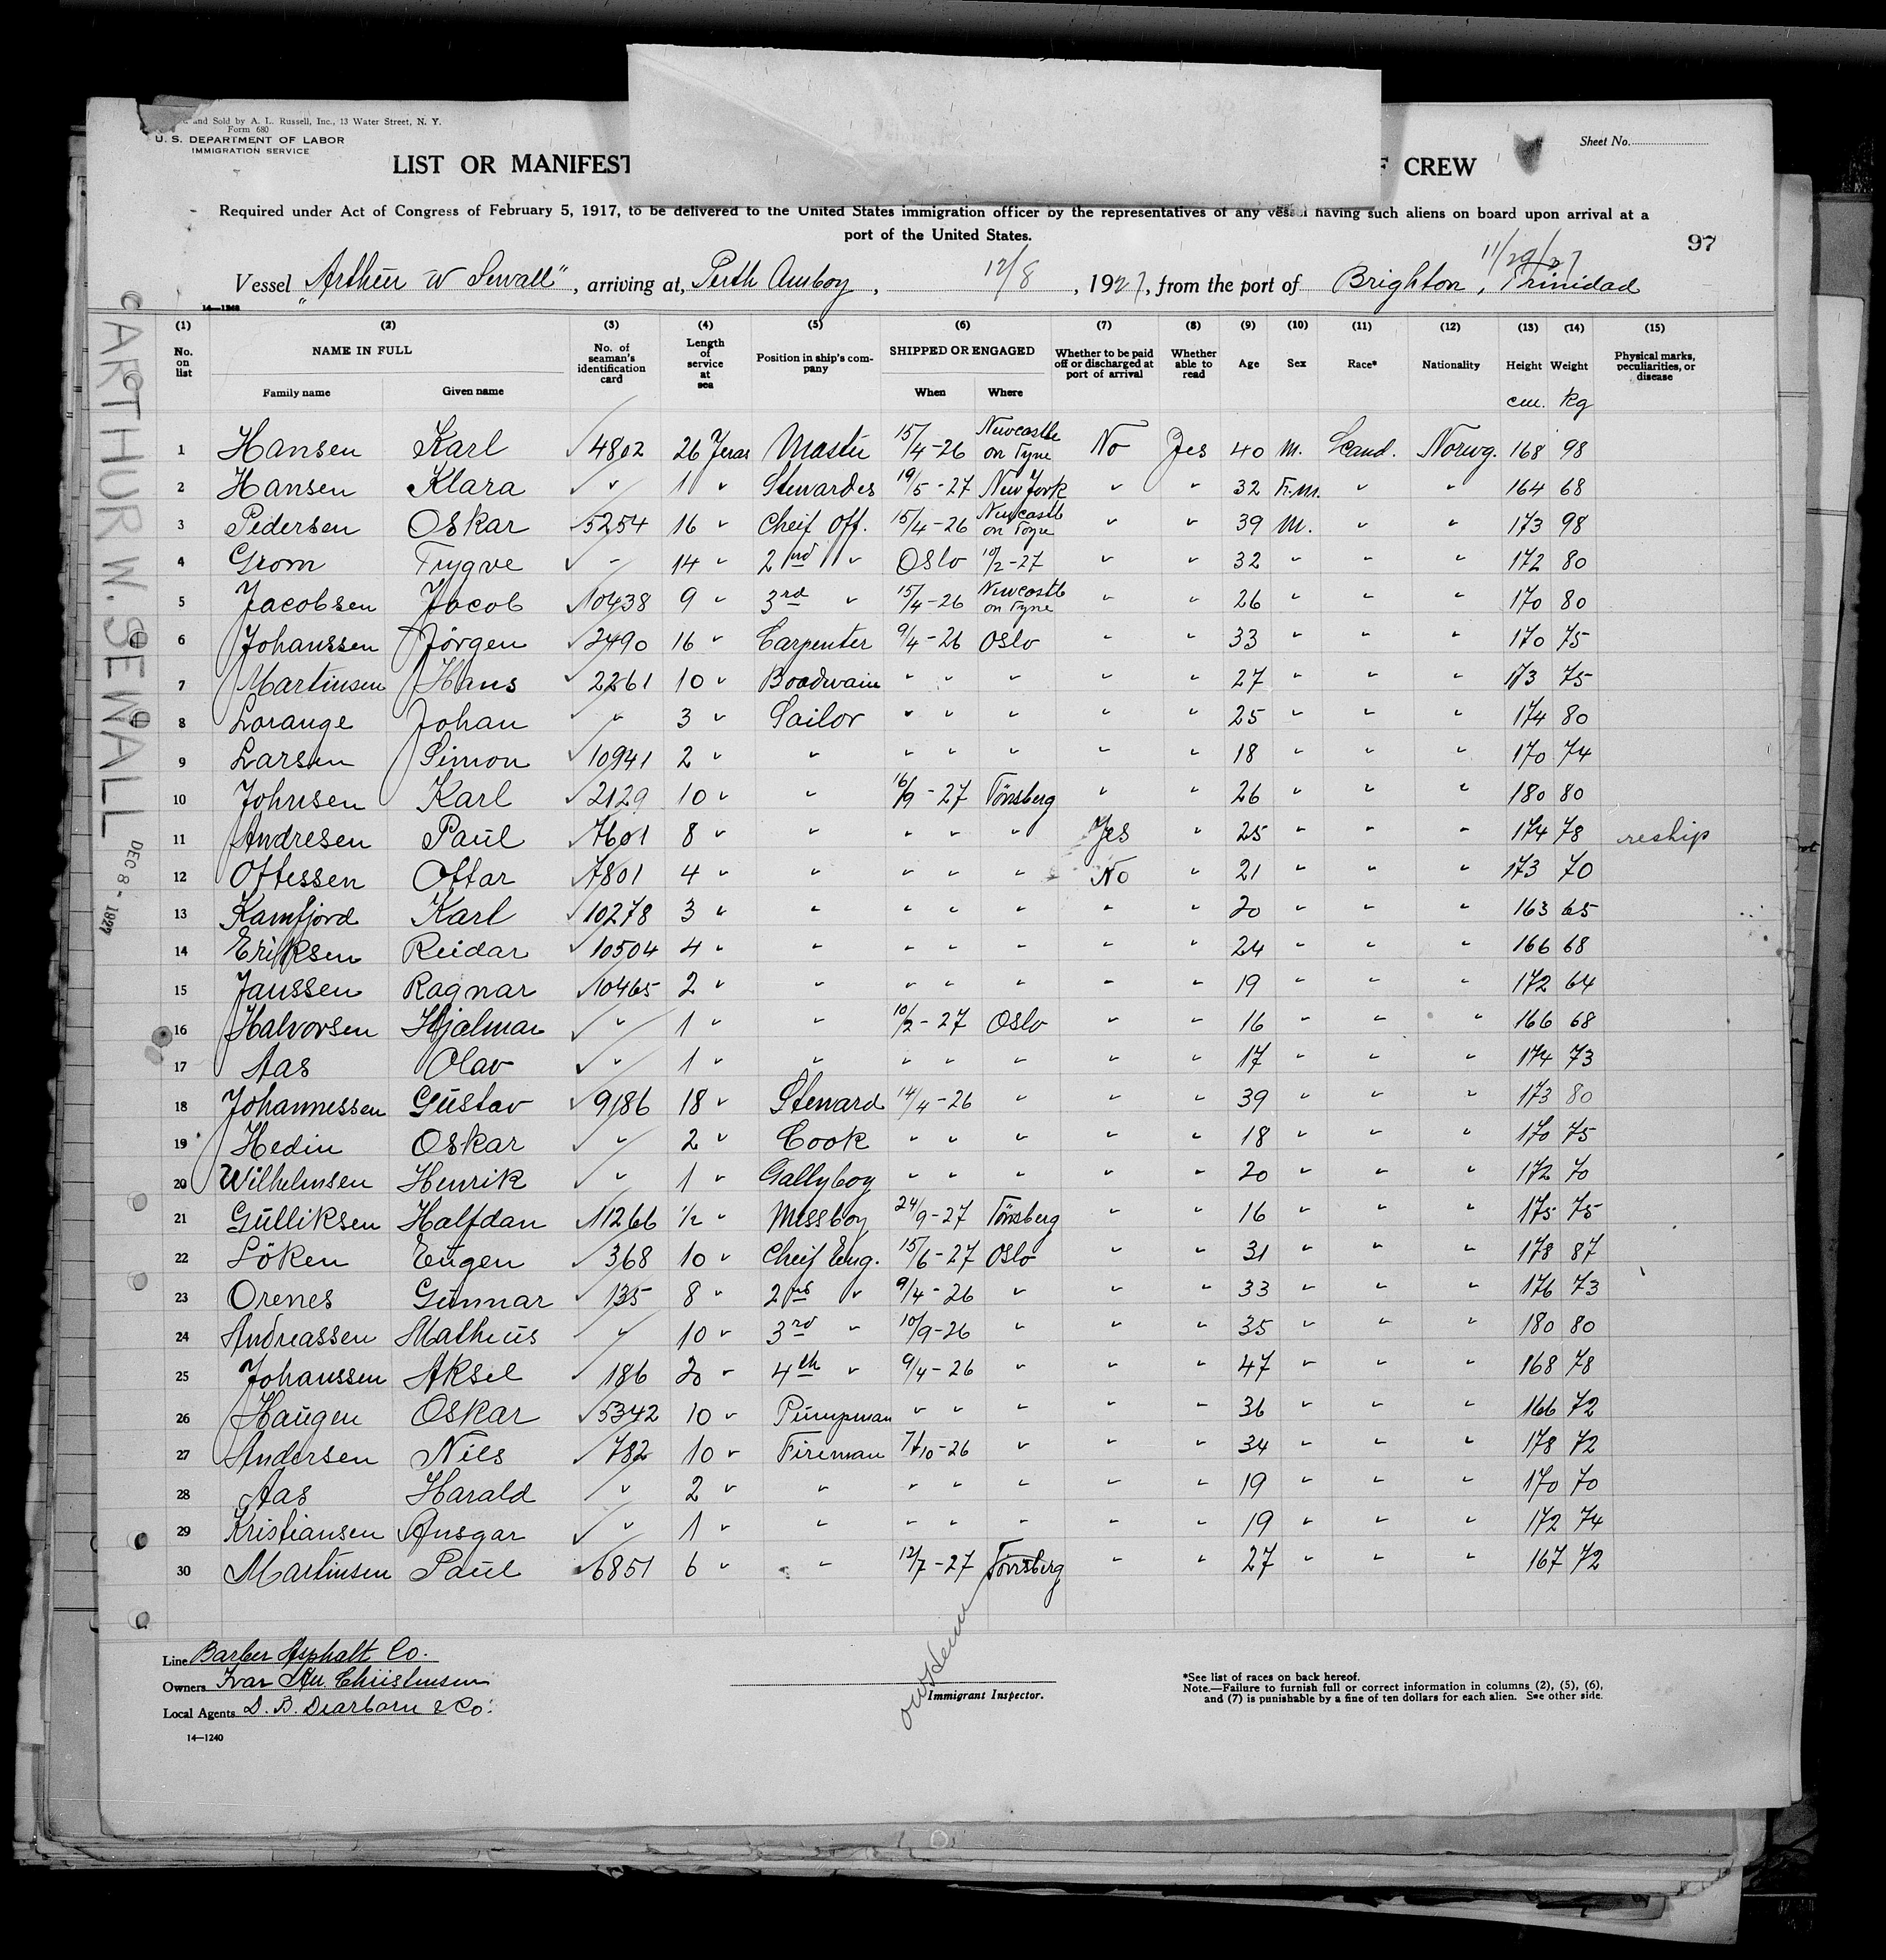 and Sold by A. L. Russell, Inc., 13 Water Street, N. Y.
Form 680
U. S. DEPARTMENT OF LABOR
IMMIGRATION SERVICE
Sheet No.
LIST OR MANIFEST CREW
Required under Act of Congress of February 5, 1917, to be delivered to the United States immigration officer by the representatives of any vessel having such aliens on board upon arrival at a
port of the United States.
97
11/29/27
Vessel "Arthur W Sewall", arriving at, Perth Amboy, 12/8, 1927, from the port of Brighton, Trinidad
14—1240
(1) (2) (3) (4) (5) (6) (7) (8) (9) (10) (11) (12) (13) (14) (15)
No. on list NAME IN FULL Family name Given name No. of seaman's identification card Length of service at sea Position in ship's company SHIPPED OR ENGAGED When Where Whether to be paid off or discharged at port of arrival Whether able to read Age Sex Race* Nationality Height Weight Physical marks, peculiarities, or disease
cm. kg
1 Hansen Karl 4802 26 Jears Master 15/4-26 Newcastle on Tyne No Yes 40 M. Scand. Norwg. 168 98
2 Hansen Klara " 1 " Stewardes 19/5-27 New York " " 32 F.m. " " 164 68
3 Pedersen Oskar 5254 16 " Cheif Off. 15/4-26 Newcastle on Tyne " " 39 M. " " 173 98
4 Grom Trygve - 14 " 2nd " Oslo 10/2-27 " " 32 " " " 172 80
5 Jacobsen Jacob 10438 9 " 3rd " 15/4-26 Newcastle on Tyne " " 26 " " " 170 80
6 Johanssen Jörgen 2490 16 " Carpenter 9/4-26 Oslo " " 33 " " " 170 75
7 Martinsen Hans 2261 10 " Boadwain " " " " " 27 " " " 173 75
8 Lorange Johan " 3 " Sailor " " " " " 25 " " " 174 80
9 Larsen Simon 10941 2 " " " " " " " 18 " " " 170 74
10 Johnsen Karl 2129 10 " " 16/9-27 Tönsberg " " 26 " " " 180 80
11 Andresen Paul 7601 8 " " " " " Yes " 25 " " " 174 78 reship
12 Oftessen Oftar 7801 4 " " " " " No " 21 " " " 173 70
13 Kamfjord Karl 10278 3 " " " " " " " 20 " " " 163 65
14 Eriksen Reidar 10504 4 " " " " " " " 24 " " " 166 68
15 Janssen Ragnar 10465 2 " " " " " " " 19 " " " 172 64
16 Halvorsen Hjalmar " 1 " " 10/2-27 Oslo " " 16 " " " 166 68
17 Aas Olav " 1 " " " " " " " 17 " " " 174 73
18 Johannessen Gustav 9186 18 " Steward 14/4-26 " " " 39 " " " 173 80
19 Hedin Oskar " 2 " Cook " " " " " 18 " " " 170 75
20 Wilhelmsen Henrik " 1 " Gallyboy " " " " " 20 " " " 172 70
21 Gulliksen Halfdan 11266 1/2 " Messboy 24/9-27 Tönsberg " " 16 " " " 175 75
22 Löken Eugen 368 10 " Cheif Eng. 15/6-27 Oslo " " 31 " " " 178 87
23 Orenes Gunnar 135 8 " 2nd " 9/4-26 " " " 33 " " " 176 73
24 Andreassen Matheus " 10 " 3rd " 10/9-26 " " " 35 " " " 180 80
25 Johanssen Aksel 186 20 " 4th " 9/4-26 " " " 47 " " " 168 78
26 Haugen Oskar 5342 10 " Pumpman " " " " " 36 " " " 166 72
27 Andersen Nils 782 10 " Fireman 7/10-26 " " " 34 " " " 178 72
28 Aas Harald " 2 " " " " " " " 19 " " " 170 70
29 Kristiansen Ansgar " 1 " " " " " " " 19 " " " 172 74
30 Martinsen Paul 6851 6 " " 12/7-27 Tönsberg " " 27 " " " 167 72
Line Barber Asphalt Co.
Owners Ivar An. Christensen
Local Agents D. B. Dearborn & Co.
14—1240
Immigrant Inspector.
*See list of races on back hereof.
Note.—Failure to furnish full or correct information in columns (2), (5), (6),
and (7) is punishable by a fine of ten dollars for each alien. See other side.
ARTHUR W. SEWALL
DEC 8 - 1927